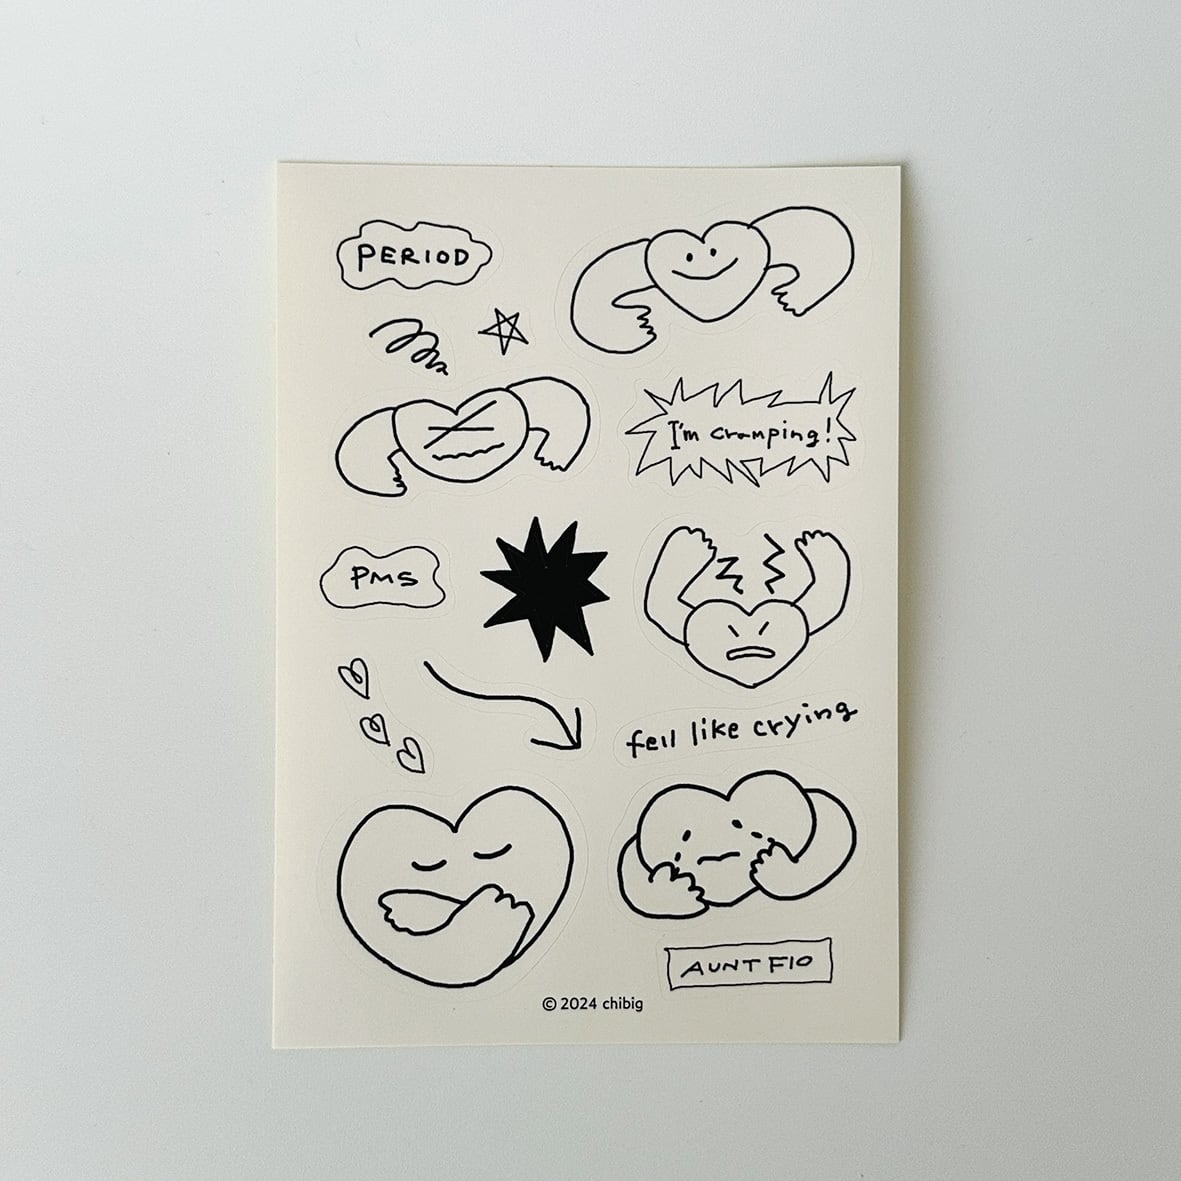 PERIOD
I'm cramping!
PMS
feil like crying
AUNT FIO
© 2024 chibig